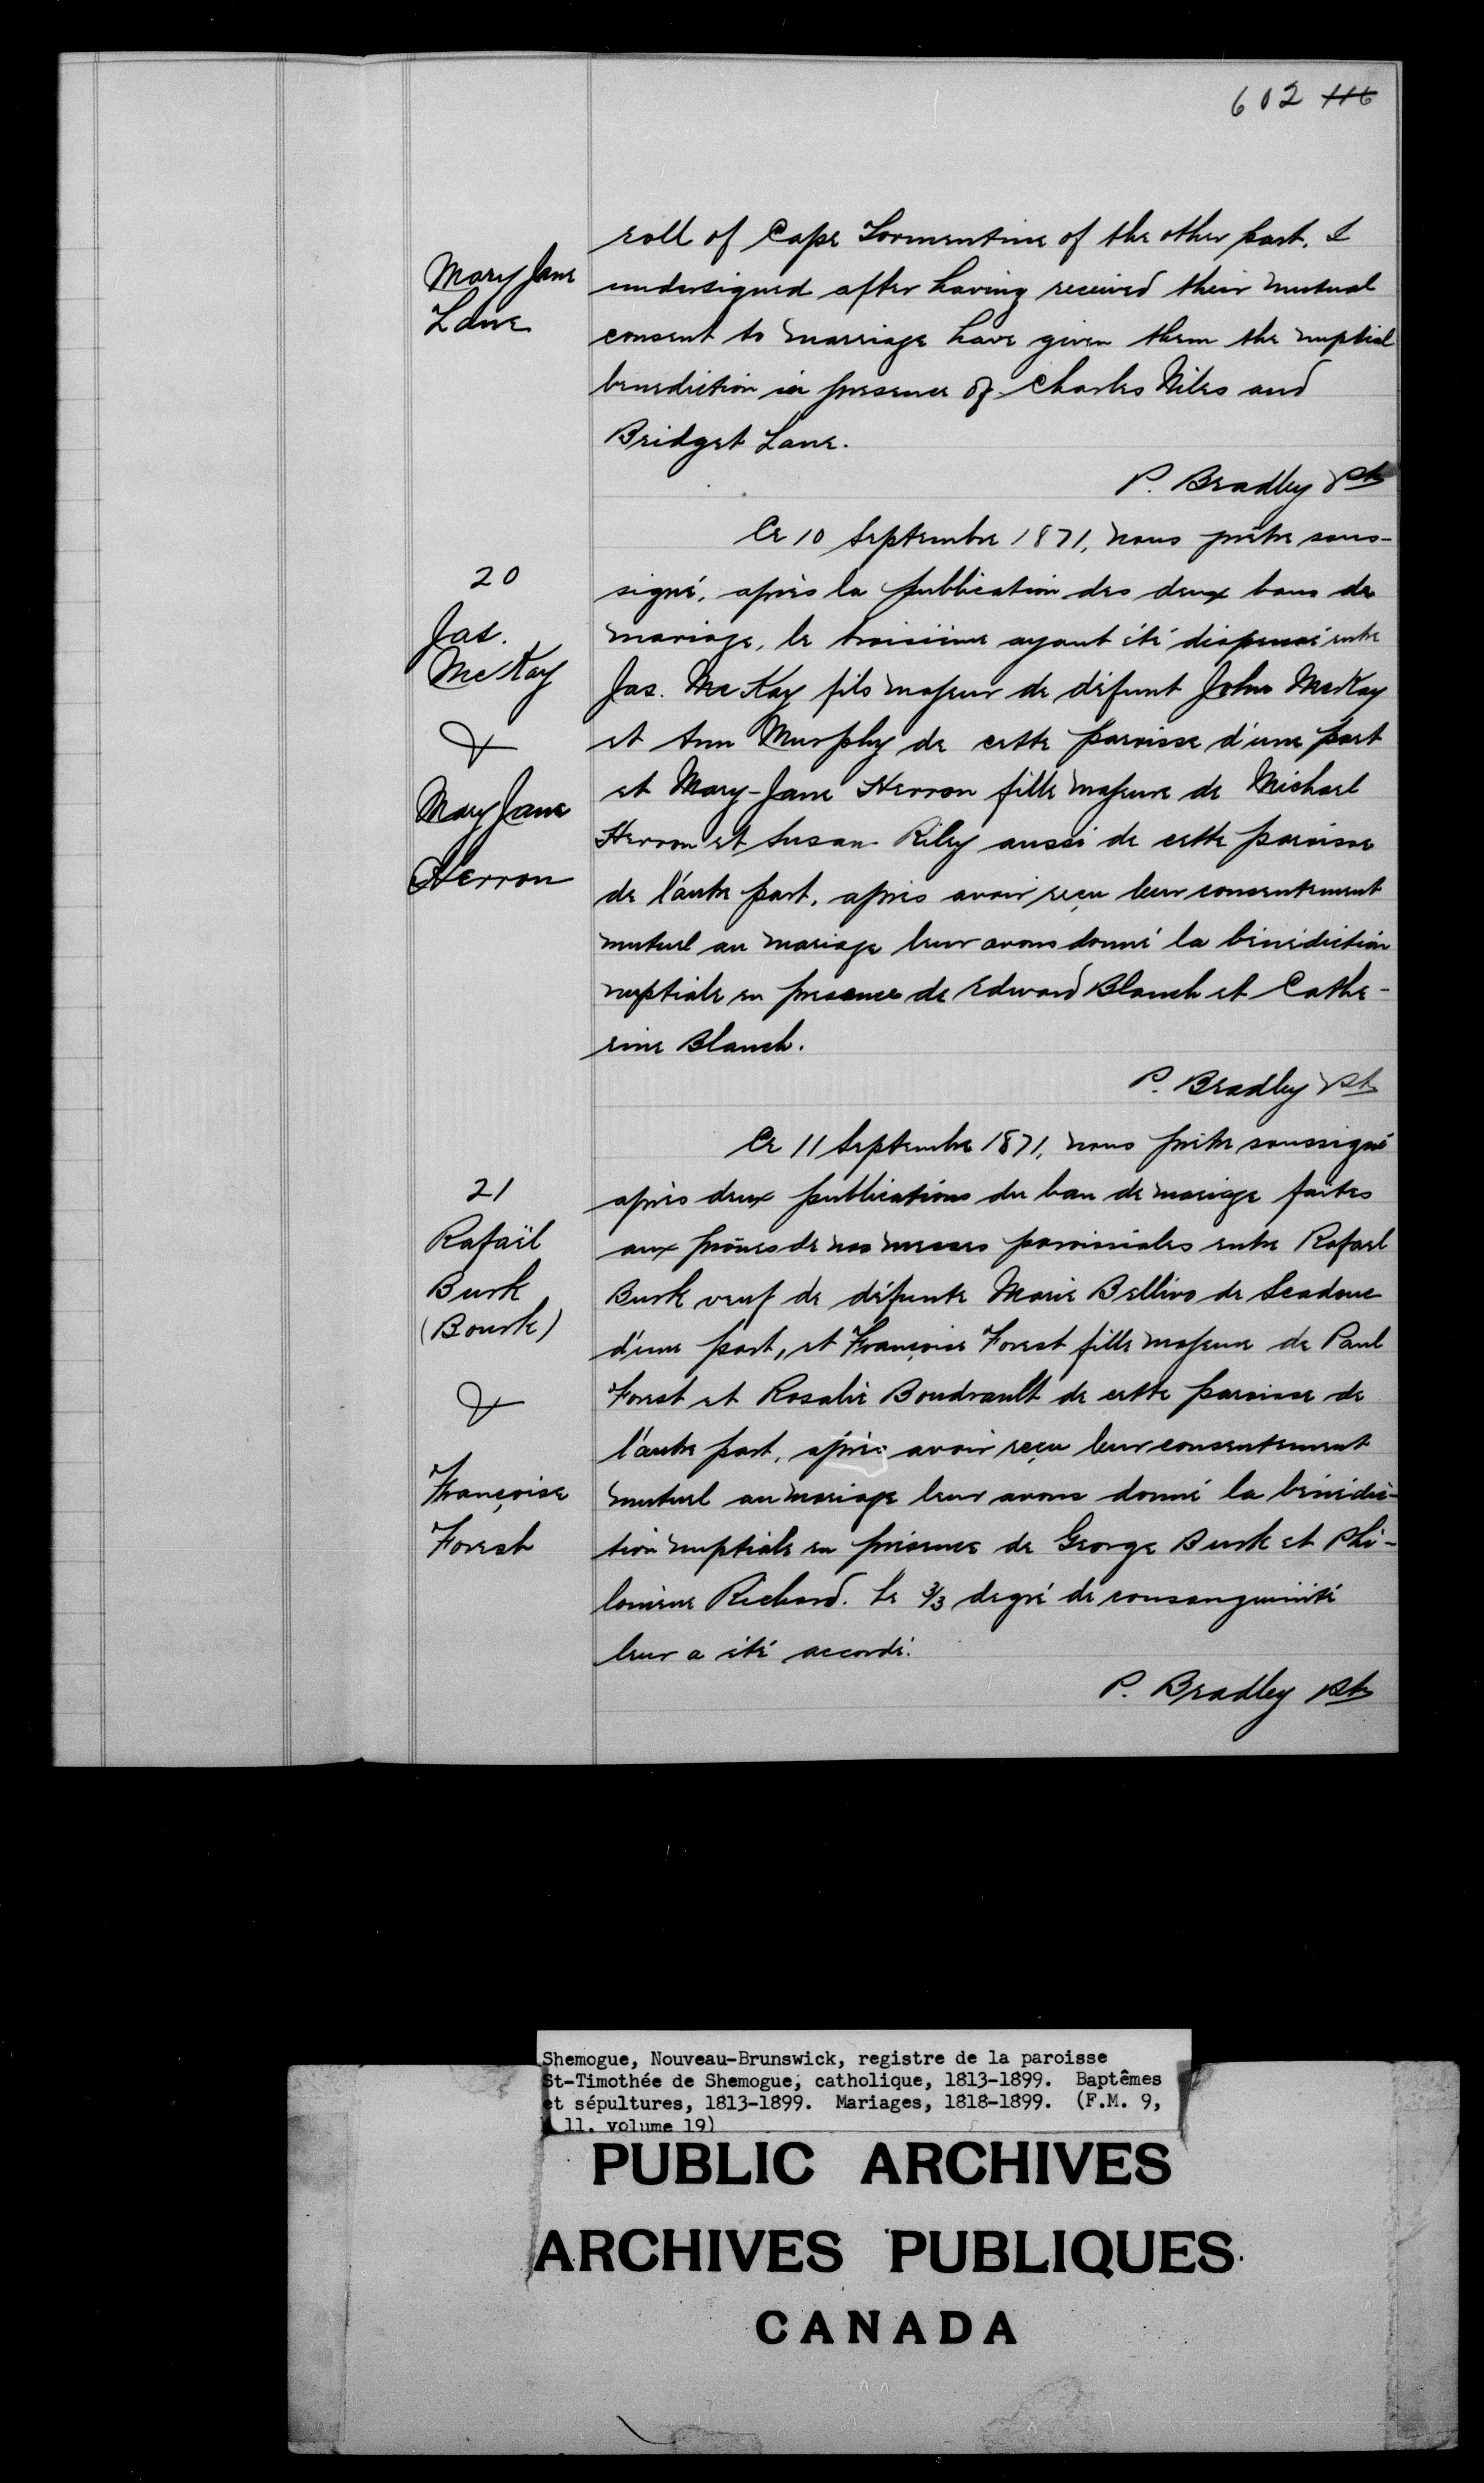 602 116
Mary Jane
Lane
roll of Cape Tormentine of the other part. I
undersigned after having received their mutual
consent to marriage have given them the nuptial
benediction in presence of Charles Niles and
Bridget Lane.
P. Bradley Ptr
20
Jas.
McKay
&
Mary Jane
Herron
Ce 10 Septembre 1871, nous prêtre sous-
signé, après la publication des deux bans de
mariage, le troisième ayant été dispensé entre
Jas. McKay fils majeur de défunt John McKay
et Ann Murphy de cette paroisse d'une part
et Mary-Jane Herron fille majeure de Michael
Herron et Susan Riley aussi de cette paroisse
de l'autre part, après avoir reçu leur consentement
mutuel au mariage leur avons donné la bénédiction
nuptiale en presence de Edward Blanch et Cathe-
rine Blanch.
P. Bradley Ptr
21
Rafaël
Burk
(Bourk)
&
Françoise
Forest
Ce 11 Septembre 1871, nous prêtre soussigné
après deux publications du ban de mariage faites
aux prônes de nos messes paroissiales entre Rafael
Burk veuf de défunte Marie Bellivo de Scadouc
d'une part, et Françoise Forest fille majeure de Paul
Forest et Rosalie Boudrault de cette paroisse de
l'autre part, après avoir reçu leur consentement
mutuel au mariage leur avons donné la bénédic-
tion nuptiale en présence de George Burk et Phi-
lomène Richard. Le 3/3 degré de consanguinité
leur a été accordé.
P. Bradley Ptr
Shemogue, Nouveau-Brunswick, registre de la paroisse
St-Timothée de Shemogue, catholique, 1813-1899. Baptêmes
et sépultures, 1813-1899. Mariages, 1818-1899. (F.M. 9,
11, volume 19)
PUBLIC ARCHIVES
ARCHIVES PUBLIQUES
CANADA